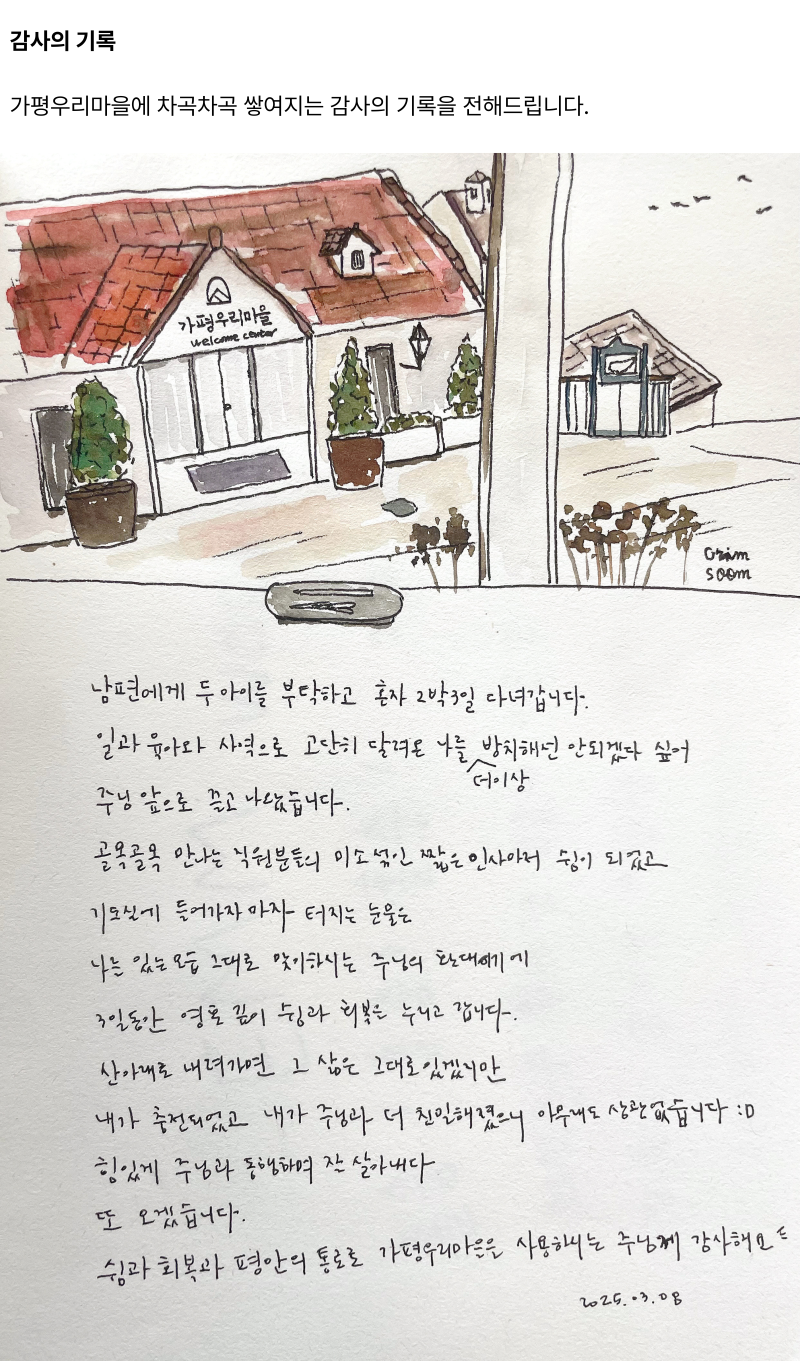 감사의 기록
가평우리마을에 차곡차곡 쌓여지는 감사의 기록을 전해드립니다.
가평우리마을
welcome center
Grim
soom
남편에게 두 아이를 부탁하고 혼자 2박3일 다녀갑니다.
일과 육아와 사역으로 고단히 달려온 나를 방치해선 안되겠다 싶어
더이상
주님 앞으로 끌고 나왔습니다.
골목골목 만나는 직원분들의 미소섞인 짧은 인사마저 쉼이 되었고
기도실에 들어가자 마자 터지는 눈물은
나를 있는모습 그대로 맞이하시는 주님의 환대에
3일동안 영혼 깊이 쉼과 회복을 누리고 갑니다.
산아래로 내려가면 그 삶은 그대로있겠지만
내가 충전되었고 내가 주님과 더 친밀해졌으니 아무래도 상관없습니다 :D
힘있게 주님과 동행하며 잘 살아내다
또 오겠습니다.
쉼과 회복과 평안의 통로로 가평우리마을을 사용하시는 주님께 감사해요
2025.03.08